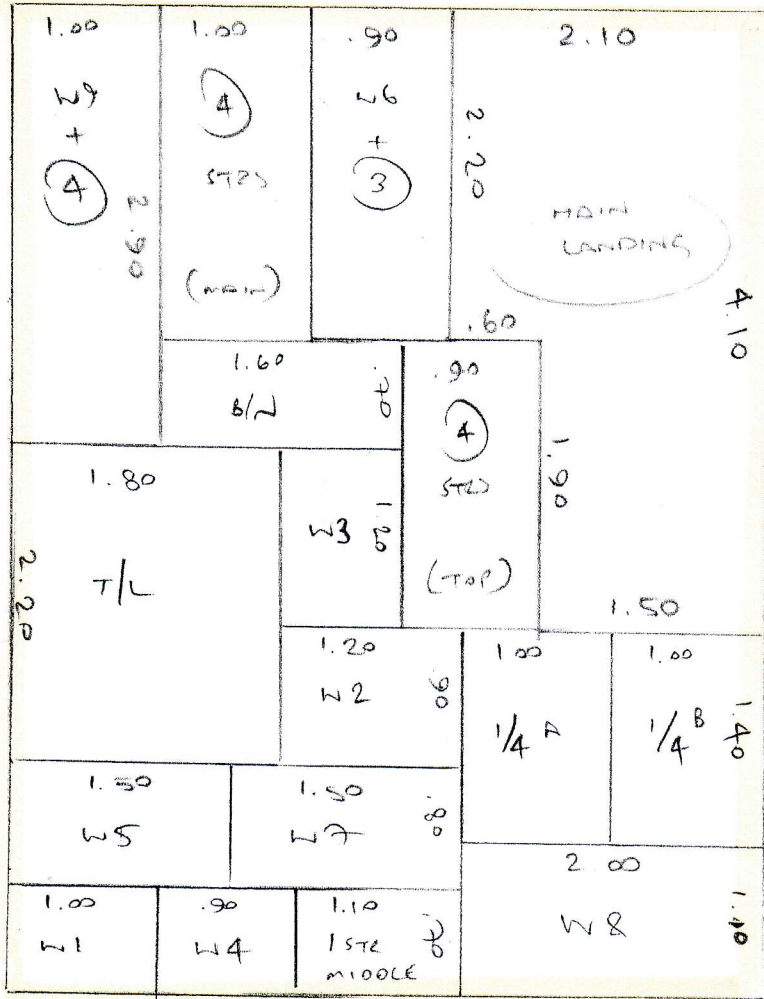 1.00
W9
+
4
2.90
1.00
4
STRS
(MAIN)
.90
W6
+
3
2.10
2.20
MAIN
LANDING
4.10
.60
1.60
B/N
.70
.90
4
STRS
(TOP)
1.90
1.50
1.80
T/L
2.20
W3
1.20
1.20
W2
.90
1.00
1/4 A
1.00
1/4 B
1.40
1.50
W5
1.50
W7
.80
2.00
W8
1.10
1.00
W1
.90
W4
1.10
1 STR
MIDDLE
.70